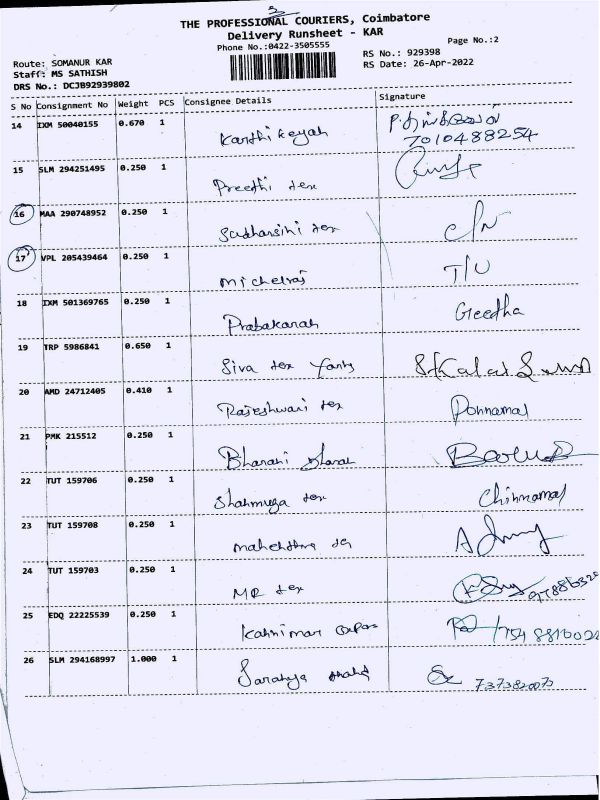 3
THE PROFESSIONAL COURIERS, Coimbatore
Delivery Runsheet - KAR
Phone No.:0422-3505555
Page No.:2
Route: SOMANUR KAR
RS No.: 929398
Staff: MS SATHISH
RS Date: 26-Apr-2022
DRS No.: DCJB92939802
S No Consignment No Weight PCS Consignee Details Signature
14 IXM 50040155 0.670 1 Karthikeyan
7010488254
15 SLM 294251495 0.250 1 Preethi tex
16 MAA 290748952 0.250 1 Sudharsini tex C/N
17 VPL 205439464 0.250 1 Michelraj T/U
18 IXM 501369765 0.250 1 Prabakaran Geetha
19 TRP 5986841 0.650 1 Siva tex Yarns
20 AMD 24712405 0.410 1 Rajeshwari tex Ponnamal
21 PMK 215512 0.250 1 Bharani
22 TUT 159706 0.250 1 Shanmuga tex Chinnamal
23 TUT 159708 0.250 1
24 TUT 159703 0.250 1 MR tex
25 EDQ 22225539 0.250 1
26 SLM 294168997 1.000 1 Saranya